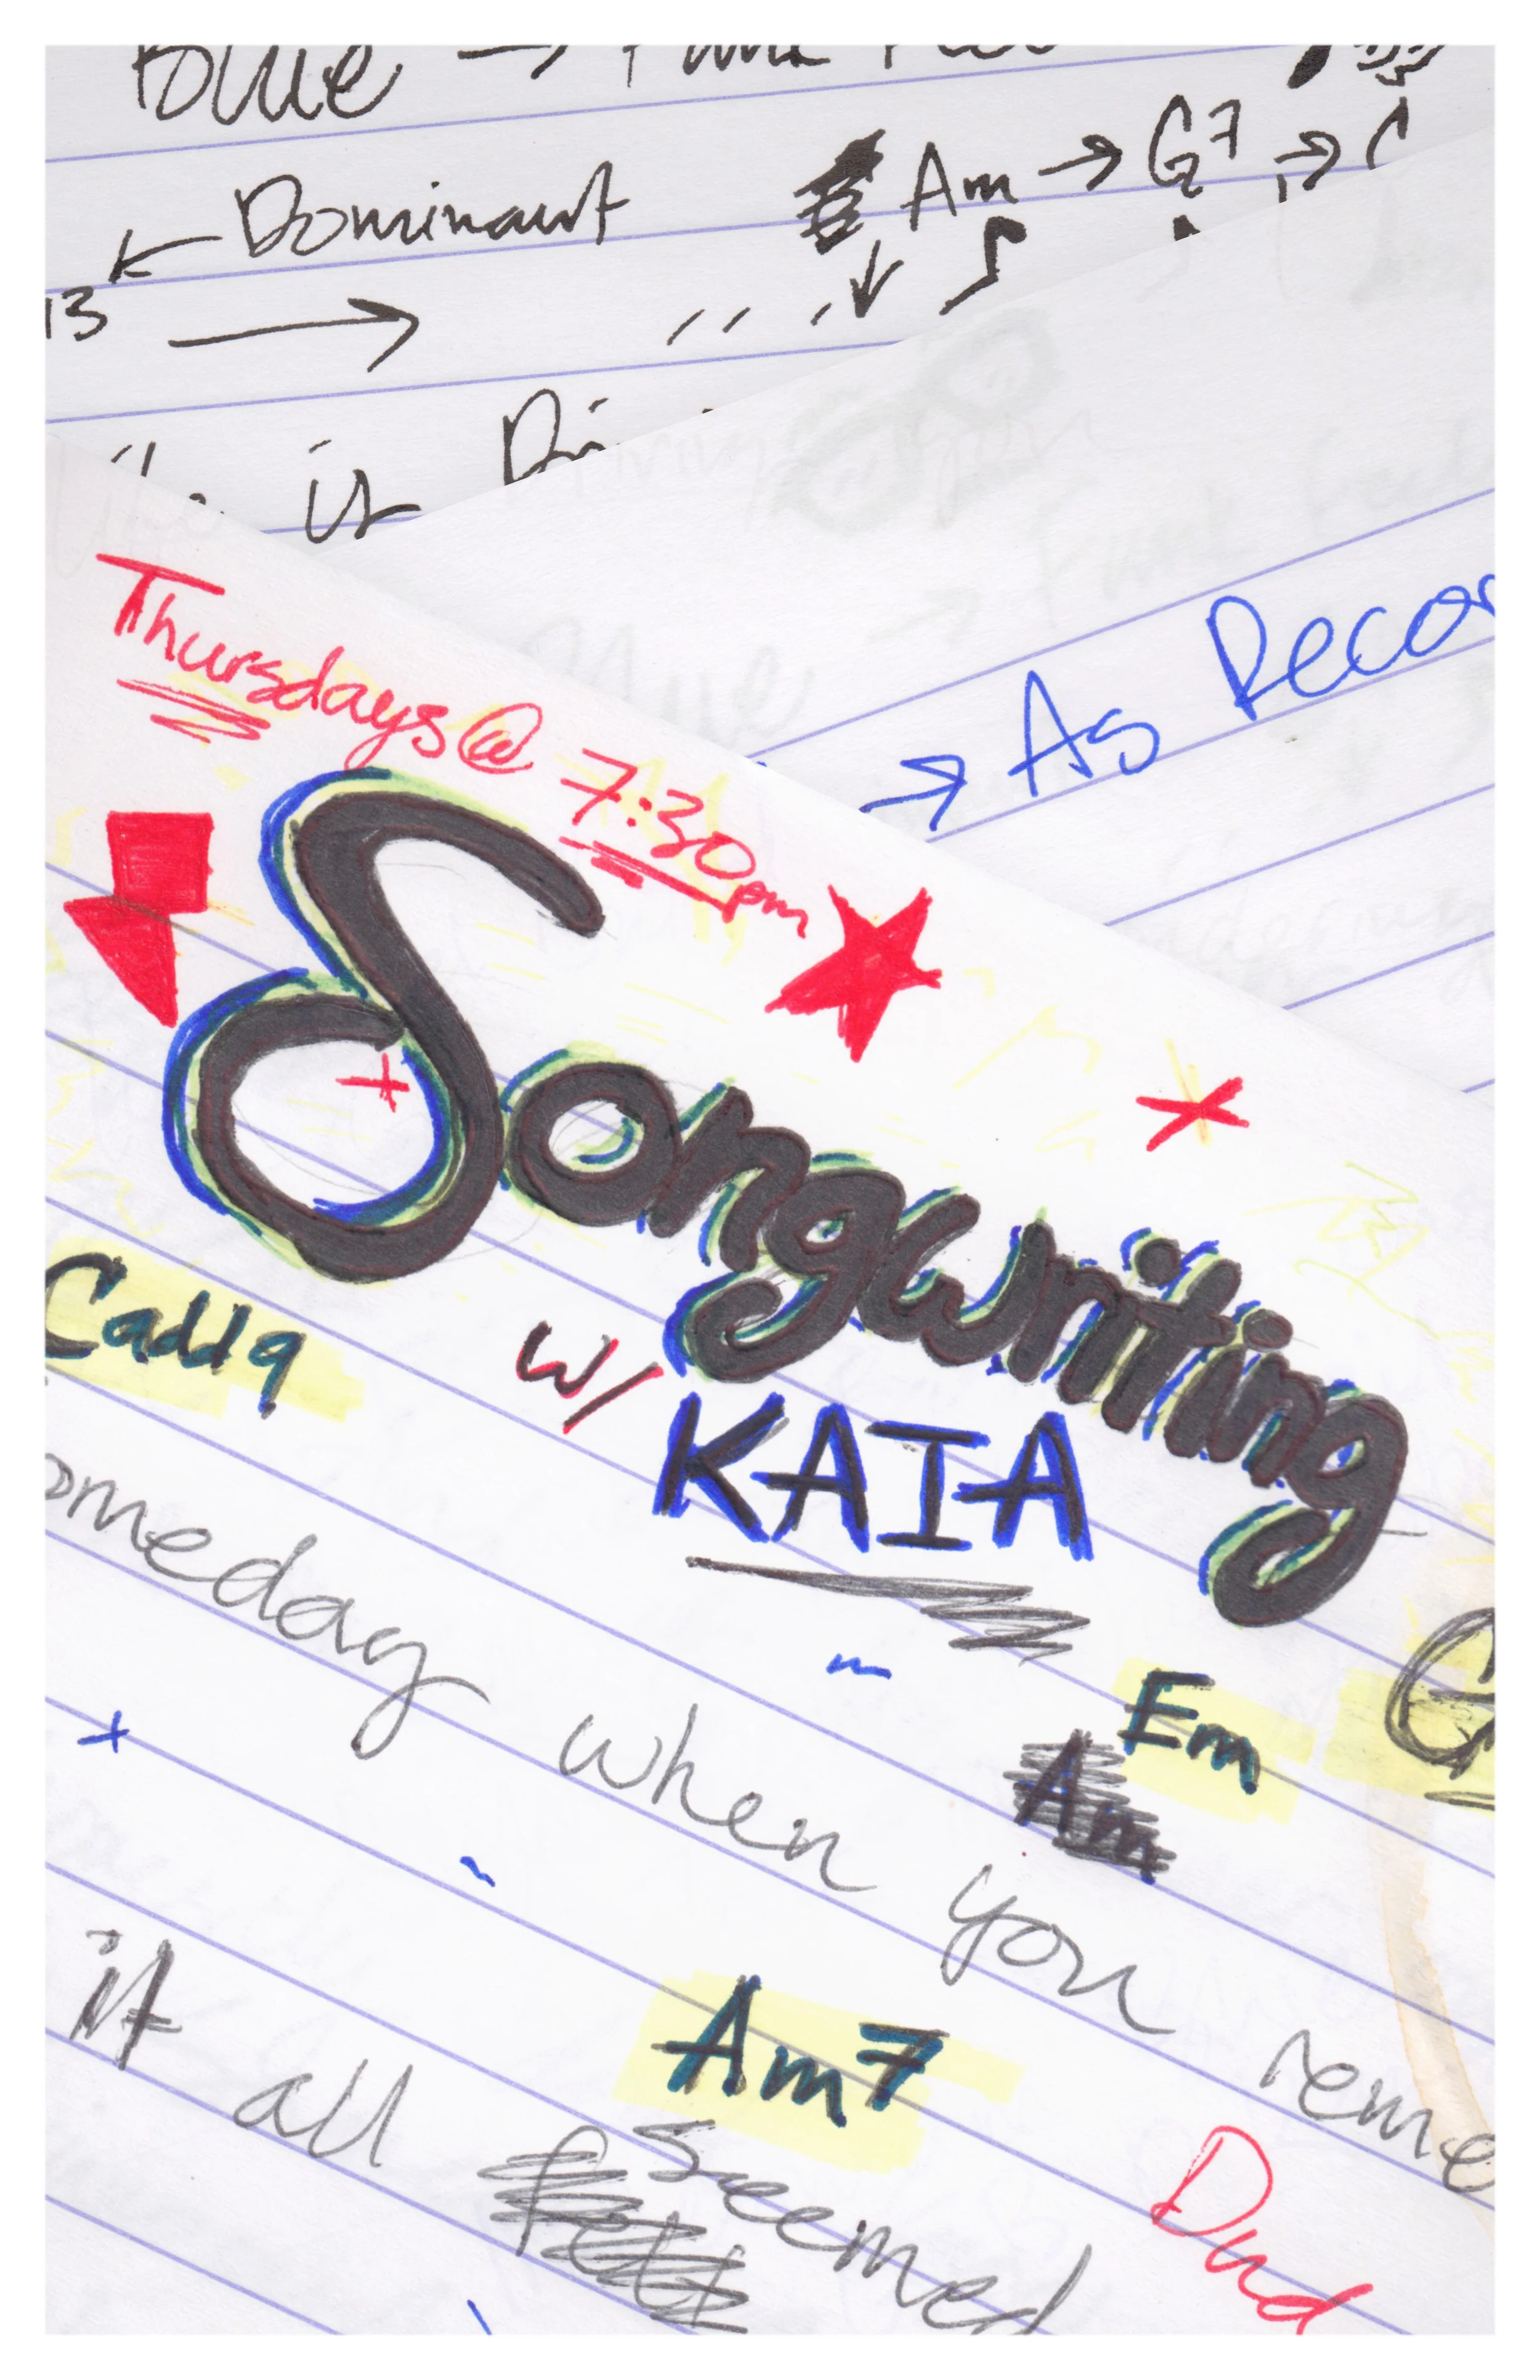 Blue →
← Dominant Am → G7 → C
13 →
is
→ As Recor
Thursdays @ 7:30pm
Songwriting
w/ KAIA
Cadd9
omeday when you reme
Em
Am
G
Am7
it all felt seemed
Dud